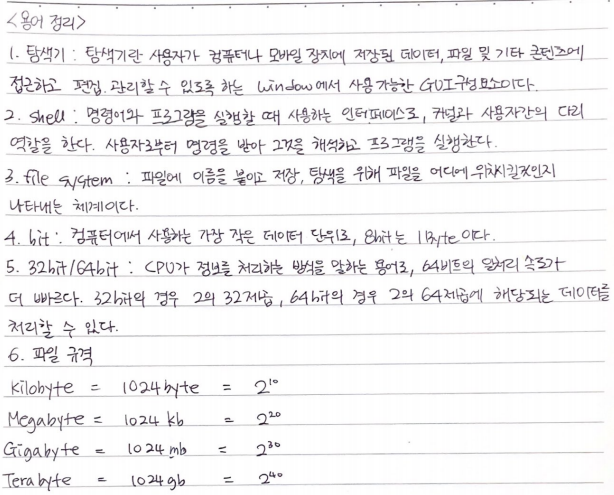 <용어 정리>
1. 탐색기 : 탐색기란 사용자가 컴퓨터나 모바일 장치에 저장된 데이터, 파일 및 기타 콘텐츠에
접근하고 편집. 관리할 수 있도록 하는 window에서 사용가능한 GUI구성요소이다.
2. shell : 명령어와 프로그램을 실행할 때 사용하는 인터페이스로, 커널과 사용자간의 다리
역할을 한다. 사용자로부터 명령을 받아 그것을 해석하고 프로그램을 실행한다.
3. file system : 파일에 이름을 붙이고 저장, 탐색을 위해 파일을 어디에 위치시킬것인지
나타내는 체계이다.
4. bit : 컴퓨터에서 사용하는 가장 작은 데이터 단위로, 8bit는 1Byte 이다.
5. 32bit/64bit : CPU가 정보를 처리하는 방식을 말하는 용어로, 64비트의 일처리 속도가
더 빠르다. 32bit의 경우 2의 32제곱, 64bit의 경우 2의 64제곱에 해당되는 데이터를
처리할 수 있다.
6. 파일 규격
Kilobyte = 1024byte = 2¹⁰
Megabyte = 1024 kb = 2²⁰
Gigabyte = 1024 mb = 2³⁰
Terabyte = 1024gb = 2⁴⁰